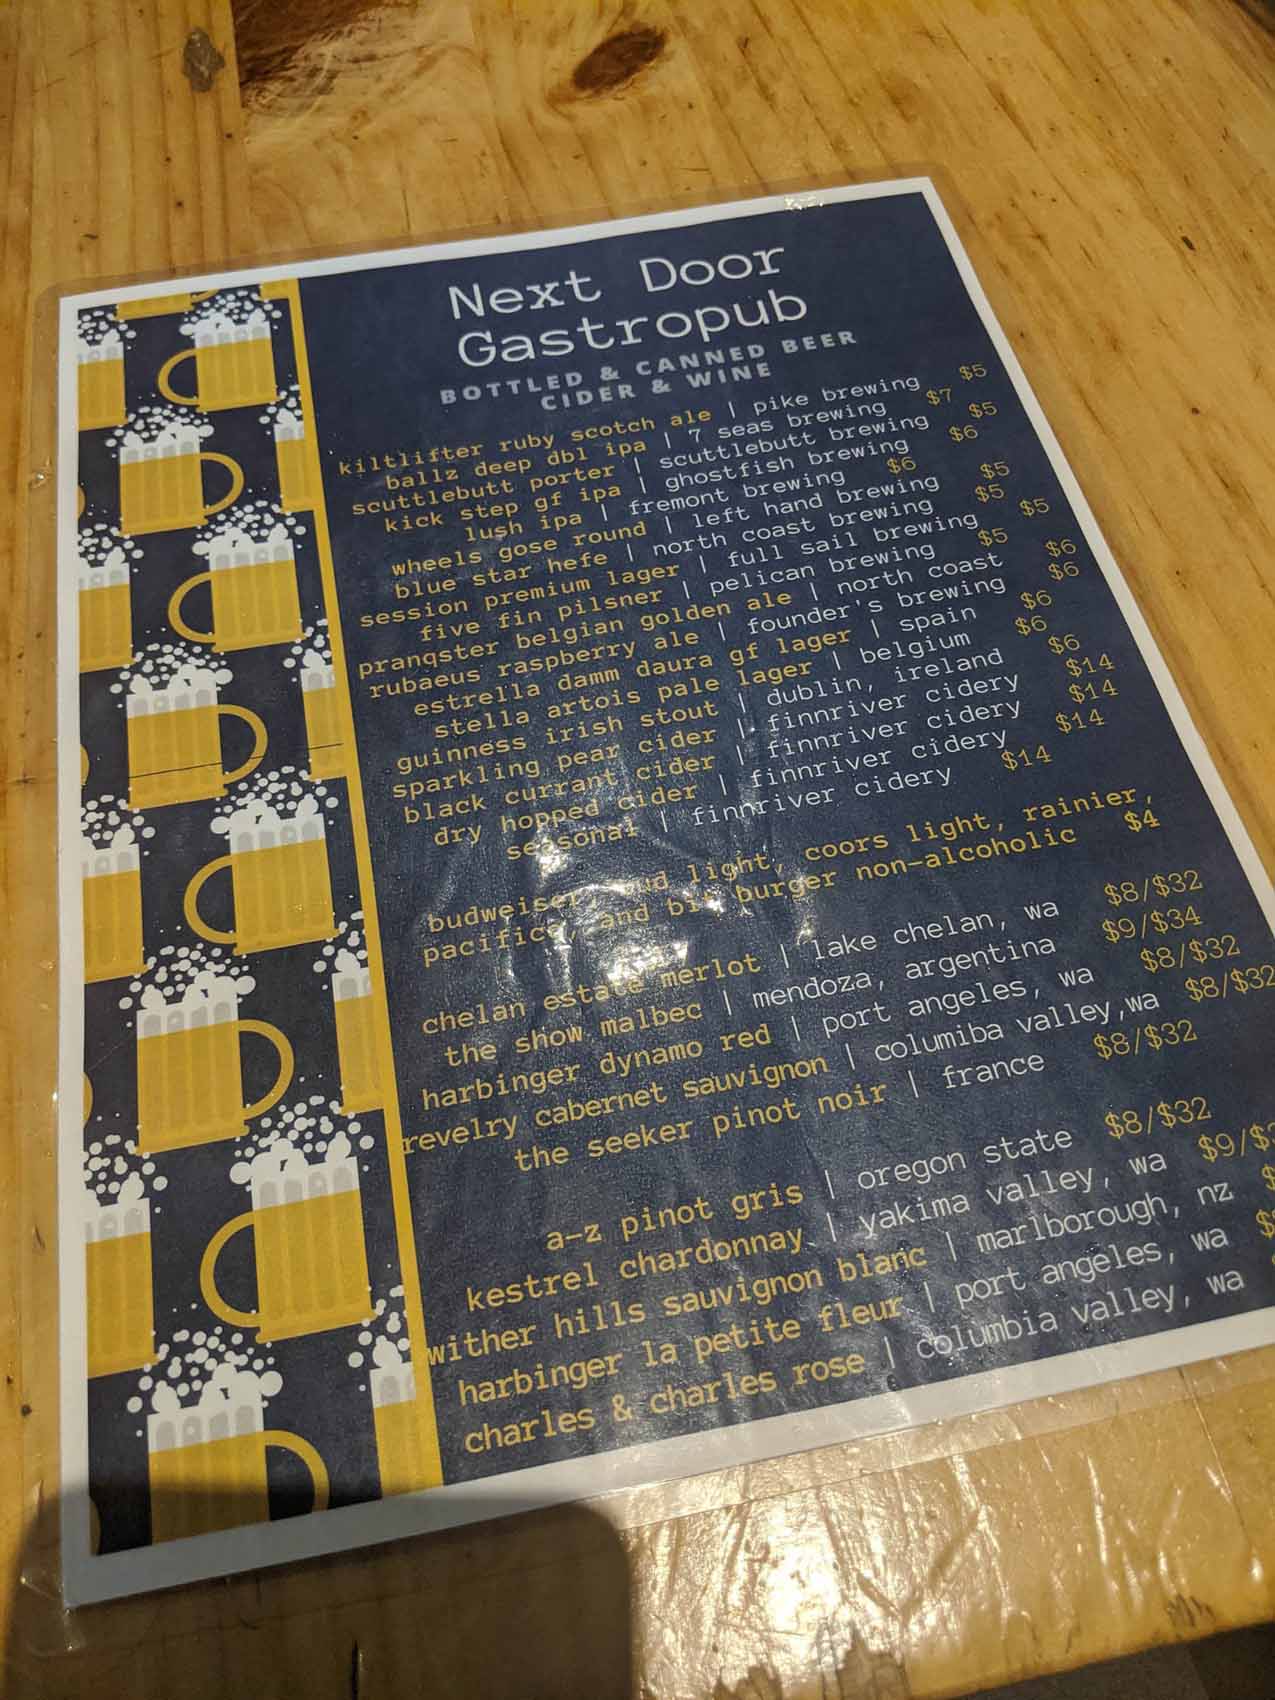 Next Door
Gastropub
BOTTLED & CANNED BEER
CIDER & WINE
kiltlifter ruby scotch ale | pike brewing $5
ballz deep dbl ipa | 7 seas brewing $7
scuttlebutt porter | scuttlebutt brewing $5
kick step gf ipa | ghostfish brewing $6
lush ipa | fremont brewing $6
wheels gose round | left hand brewing $5
blue star hefe | north coast brewing $5
session premium lager | full sail brewing $5
five fin pilsner | pelican brewing $5
pranqster belgian golden ale | north coast $6
rubaeus raspberry ale | founder's brewing $6
estrella damm daura gf lager | spain $6
stella artois pale lager | belgium $6
guinness irish stout | dublin, ireland $6
sparkling pear cider | finnriver cidery $14
black currant cider | finnriver cidery $14
dry hopped cider | finnriver cidery $14
seasonal | finnriver cidery $14
budweiser, bud light, coors light, rainier,
pacifico, and bit burger non-alcoholic $4
chelan estate merlot | lake chelan, wa $8/$32
the show malbec | mendoza, argentina $9/$34
harbinger dynamo red | port angeles, wa $8/$32
revelry cabernet sauvignon | columiba valley,wa $8/$32
the seeker pinot noir | france $8/$32
a-z pinot gris | oregon state $8/$32
kestrel chardonnay | yakima valley, wa
wither hills sauvignon blanc | marlborough, nz
harbinger la petite fleur | port angeles, wa
charles & charles rose | columbia valley, wa